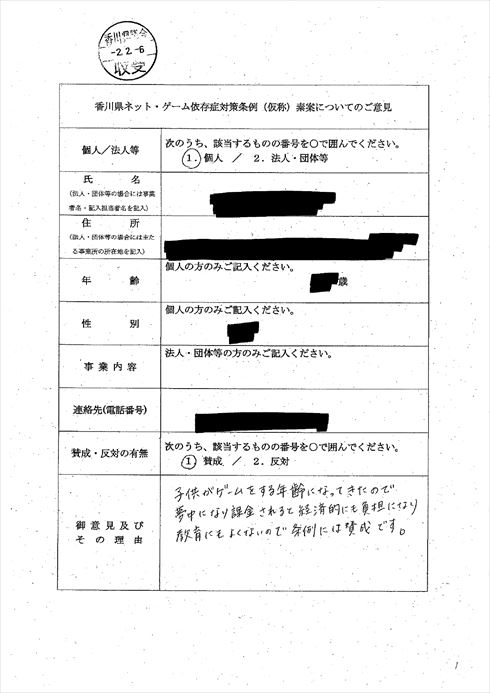 香川県
-2.2.-6
収受
香川県ネット・ゲーム依存症対策条例（仮称）素案についてのご意見
個人／法人等
次のうち、該当するものの番号を○で囲んでください。
1．個人 ／ 2．法人・団体等
氏名
（法人・団体等の場合には事業
者名・記入担当者名を記入）
住所
（法人・団体等の場合には主た
る事業所の所在地を記入）
年齢
個人の方のみご記入ください。
歳
性別
個人の方のみご記入ください。
事業内容
法人・団体等の方のみご記入ください。
連絡先(電話番号)
賛成・反対の有無
次のうち、該当するものの番号を○で囲んでください。
1 賛成 ／ 2．反対
御意見及び
その理由
子供がゲームをする年齢になってきたので
夢中になり課金されると経済的にも負担になり
教育にもよくないので条例には賛成です。
1